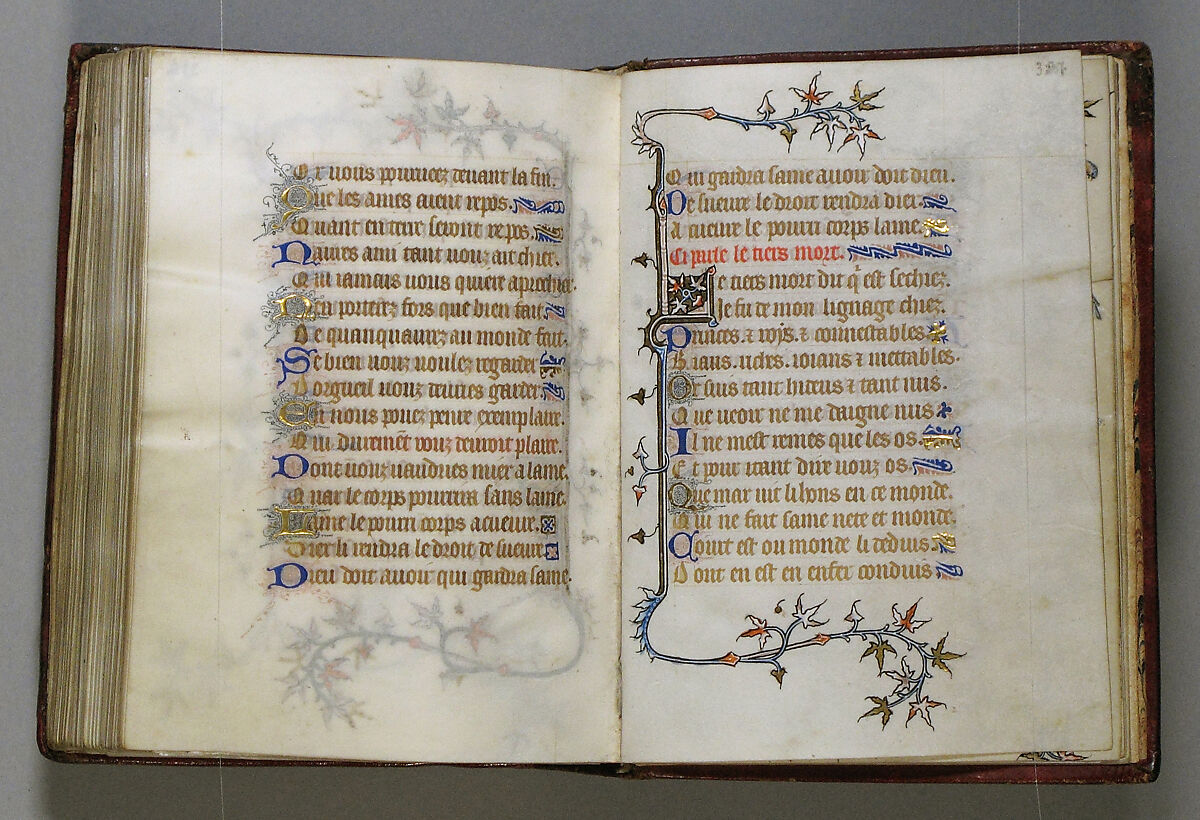 Et vous pourueez deuant la fin.
Que les ames aient repos.
Quant en terre seront repos.
Naures ami tant vouz ait chier.
Qui iamais vous quiere aprochier.
Nen portez fors que bien fait.
De quanquaurez au monde fait.
Se bien vouz voulez regarder
Dorgueil vouz deuries garder.
En nous pouez penre exemplaire.
Qui durement vouz deuroit plaire.
Dont vouz vaudries miex a lame
Quar le corps pourrira sans lame.
Lame le pourri corps acueure.
Dieu li rendra le droit de sueure
Dieu doit auoir qui gardra same.
327
Qui gardra same auoir doit dieu.
De sueure le droit rendra diex.
Acueure le pourri corps lame.
Ci parle le tiers mort.
Le tiers mort dit q̄ est sechiez.
Je fu de mon lignage chiez.
Princes. & roys. & connestables
Biaus. riches. ioians & mettables.
Or suis tant hideus & tant nus.
Que veoir ne me daigne nus
Il ne mest remes que les os.
Et pour itant dire vouz os.
Que mar vit li hons en ce monde.
Qui ne fait same nete et monde.
Court est ou monde li deduis.
Dont en est en enfer conduis